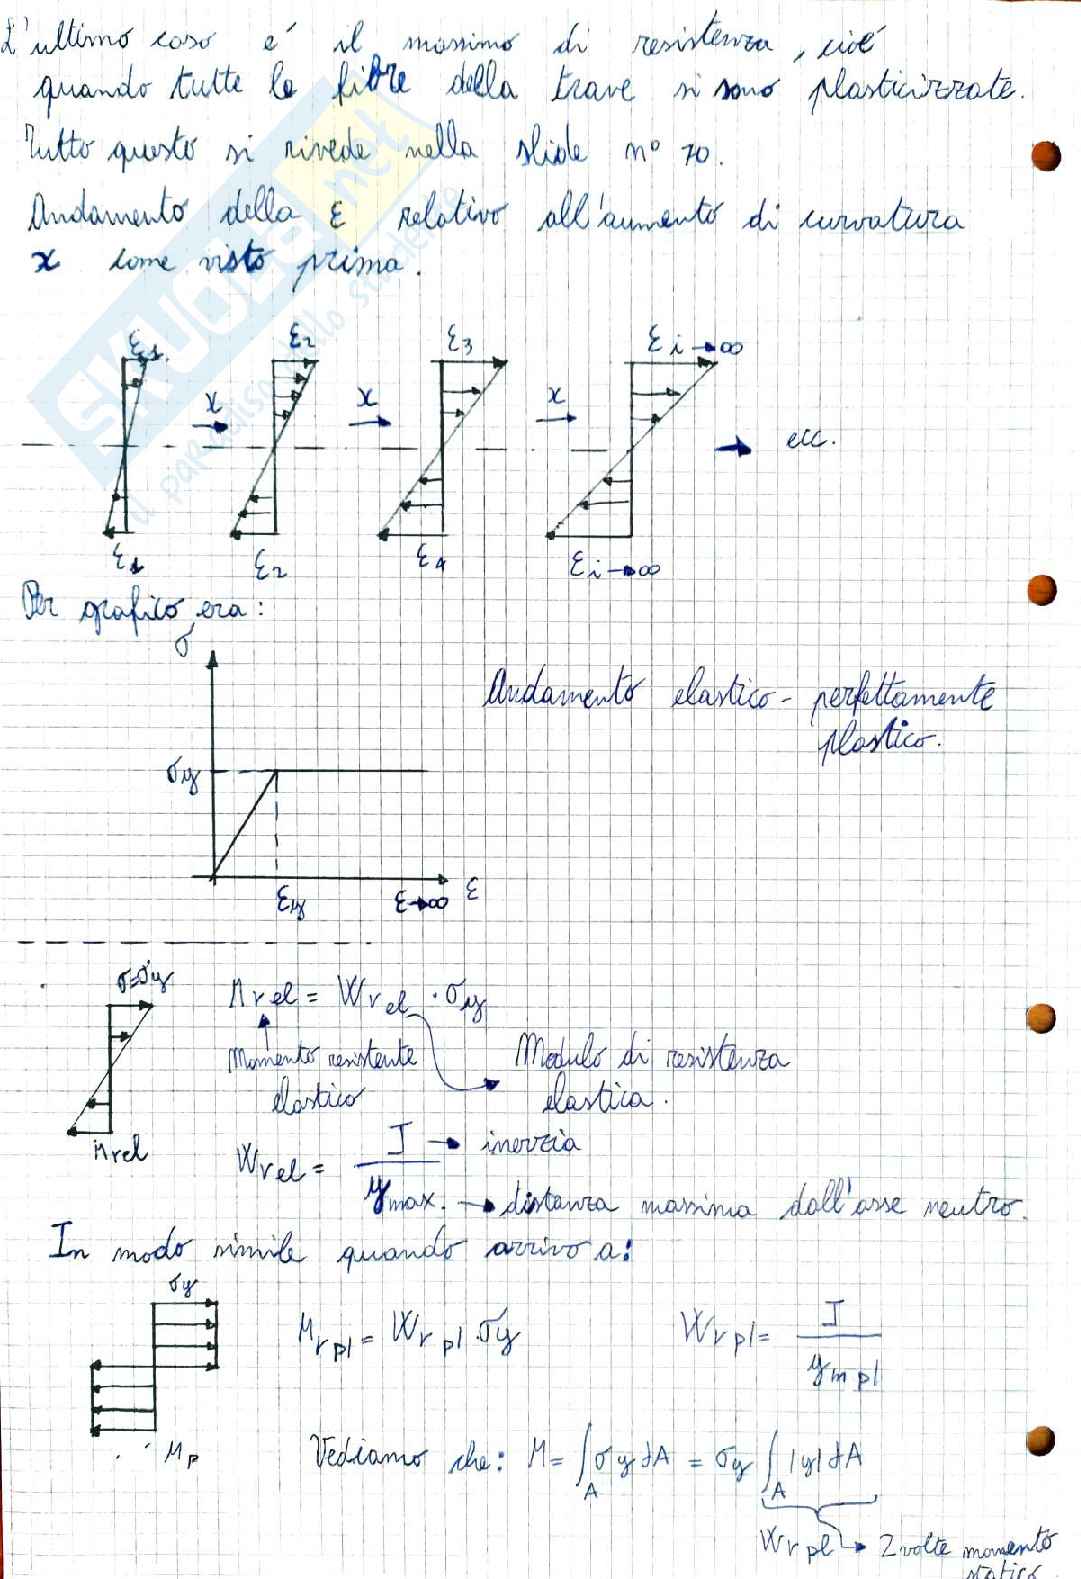 L'ultimo caso e' il massimo di resistenza, cioè
quando tutte le fibre della trave si sono plasticizzate.
Tutto questo si rivede nella slide n° 70.
Andamento della ε relativo all'aumento di curvatura
x come visto prima.
SKUOLA.net
il paradiso dello studente
ε1 ε2 ε3 εi→∞
x x x
ecc.
ε1 ε2 ε4 εi→∞
Per grafico era:
σ
Andamento elastico - perfettamente
plastico.
σy
εy ε→∞ ε
σ=σy
Mrel = Wrel · σy
Momento resistente
elastico
Modulo di resistenza
elastica.
Mrel
Wrel = I / ymax.
I → inerzia
ymax. → distanza massima dall'asse neutro.
In modo simile quando arrivo a:
σy
Mrpl = Wrpl σy Wrpl = I / ympl
Mp
Vediamo che: M = ∫A σ y dA = σy ∫A |y| dA
Wrpl → 2 volte momento
statico